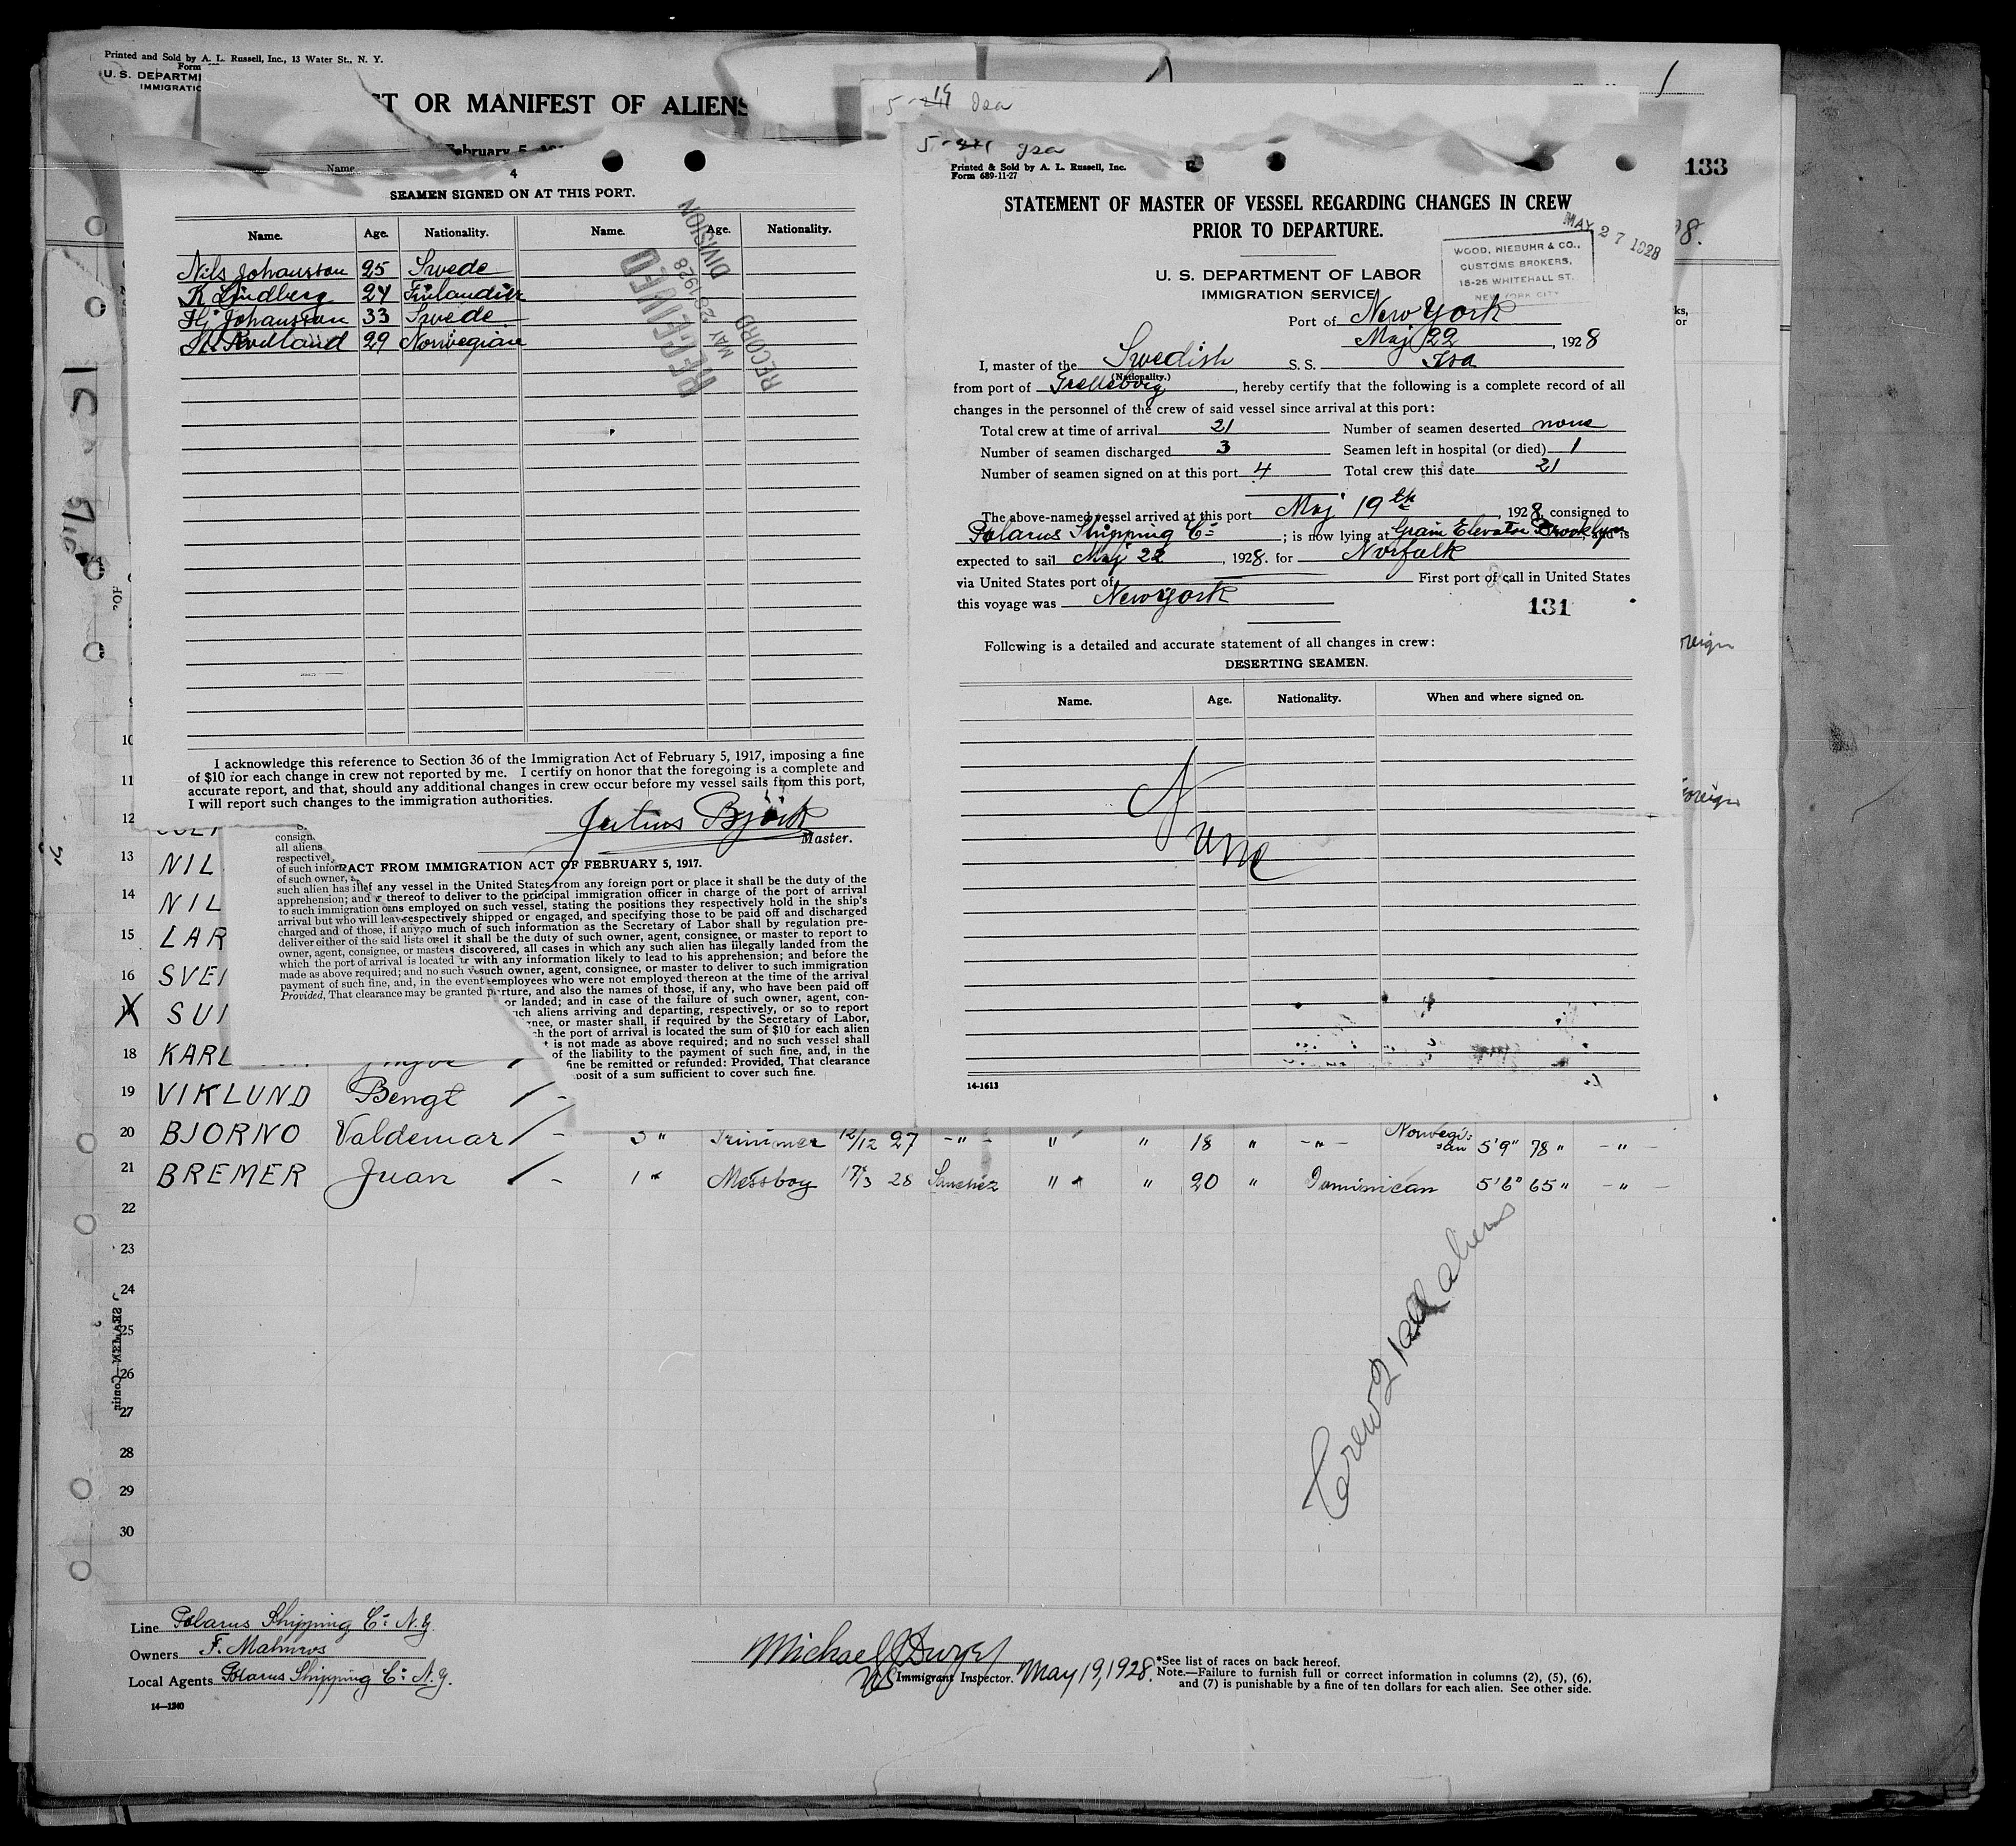 Printed and Sold by A. L. Russell, Inc., 13 Water St., N. Y.
Form
U. S. DEPARTM
IMMIGRATIO
ST OR MANIFEST OF ALIENS
February 5, 19
Name
4
SEAMEN SIGNED ON AT THIS PORT.
Name. Age. Nationality. Name. Age. Nationality.
Nils Johansson 25 Swede
K Lindberg 24 Finlandish
Hj Johansson 33 Swede
29 Norwegian
RECEIVED
MAY 26 1928
RECORD DIVISION
I acknowledge this reference to Section 36 of the Immigration Act of February 5, 1917, imposing a fine
of $10 for each change in crew not reported by me. I certify on honor that the foregoing is a complete and
accurate report, and that, should any additional changes in crew occur before my vessel sails from this port,
I will report such changes to the immigration authorities.
Julius Björk
Master.
RACT FROM IMMIGRATION ACT OF FEBRUARY 5, 1917.
ef any vessel in the United States from any foreign port or place it shall be the duty of the
thereof to deliver to the principal immigration officer in charge of the port of arrival
ns employed on such vessel, stating the positions they respectively hold in the ship's
respectively shipped or engaged, and specifying those to be paid off and discharged
so much of such information as the Secretary of Labor shall by regulation pre-
el it shall be the duty of such owner, agent, consignee, or master to report to
is discovered, all cases in which any such alien has illegally landed from the
r with any information likely to lead to his apprehension; and before the
such owner, agent, consignee, or master to deliver to such immigration
employees who were not employed thereon at the time of the arrival
rture, and also the names of those, if any, who have been paid off
or landed; and in case of the failure of such owner, agent, con-
uch aliens arriving and departing, respectively, or so to report
nee, or master shall, if required by the Secretary of Labor,
ch the port of arrival is located the sum of $10 for each alien
t is not made as above required; and no such vessel shall
of the liability to the payment of such fine, and, in the
fine be remitted or refunded: Provided, That clearance
posit of a sum sufficient to cover such fine.
consign
all aliens
respectivel
of such infor
of such owner,
such alien has ill
apprehension; and
to such immigration o
arrival but who will leave
charged and of those, if any,
deliver either of the said lists o
owner, agent, consignee, or master
which the port of arrival is located
made as above required; and no such ve
payment of such fine, and, in the event
Provided, That clearance may be granted
5-19 Isa
5- Isa
Printed & Sold by A. L. Russell, Inc.
Form 689-11-27
133
STATEMENT OF MASTER OF VESSEL REGARDING CHANGES IN CREW
PRIOR TO DEPARTURE.
MAY 27 1928
WOOD, NIEBUHR & CO.,
CUSTOMS BROKERS,
15-25 WHITEHALL ST.
NEW YORK CITY
U. S. DEPARTMENT OF LABOR
IMMIGRATION SERVICE
Port of New York
Maj 22, 1928
I, master of the Swedish S. S. Isa
(Nationality.)
from port of Trelleborg, hereby certify that the following is a complete record of all
changes in the personnel of the crew of said vessel since arrival at this port:
Total crew at time of arrival 21 Number of seamen deserted none
Number of seamen discharged 3 Seamen left in hospital (or died) 1
Number of seamen signed on at this port 4 Total crew this date 21
The above-named vessel arrived at this port Maj 19th, 1928, consigned to
Polarus Shipping Co; is now lying at Grain Elevator Brooklyn, and is
expected to sail Maj 22, 1928. for Norfolk
via United States port of First port of call in United States
this voyage was New York
131
Following is a detailed and accurate statement of all changes in crew:
DESERTING SEAMEN.
Name. Age. Nationality. When and where signed on.
None
14-1613
10
11
12
13 NIL
14 NIL
15 LAR
16 SVEI
X SUI
18 KARL
19 VIKLUND Bengt
20 BJORNO Valdemar / - 3 " Trimmer 12/12 27 -"- " " 18 " -"- Norwegi=an 5'9" 78 " -"-
21 BREMER Juan / - 1 " Messboy 17/3 28 Sanchez " " 20 " Dominican 5'6" 65 " -"-
22
23
24
25
26
27
28
29
30
Crew 21 all aliens
oreign
Foreign
SEAMEN—Contin
Line Polarus Shipping Co N.Y.
Owners F. Malmros
Local Agents Polarus Shipping Co N.Y.
14—1240
Michael J Dwyer
US Immigrant Inspector. May 19, 1928.
*See list of races on back hereof.
Note.—Failure to furnish full or correct information in columns (2), (5), (6),
and (7) is punishable by a fine of ten dollars for each alien. See other side.